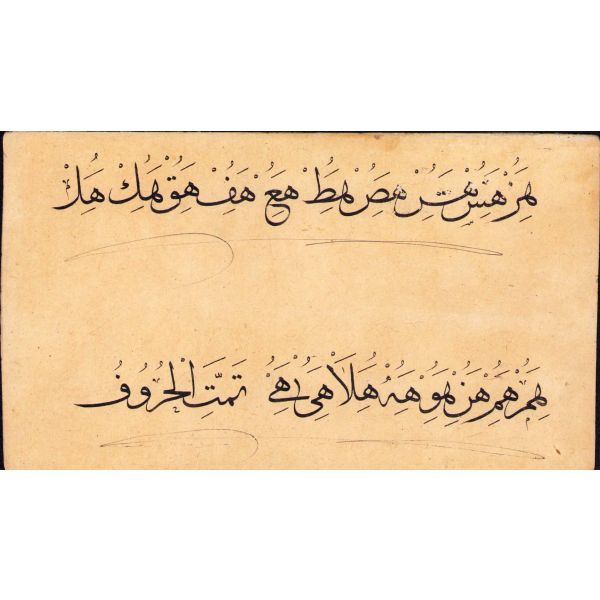 هر هس هس هص هط هع هف هق هك هل
هم هم هن هو هه هلا هي هے تمت الحروف